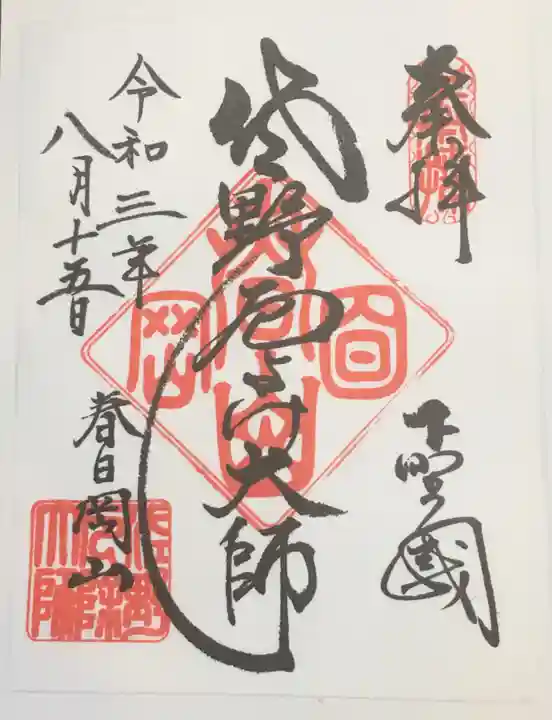 奉拝
下野國
佐野厄よけ大師
令和三年
八月十五日
春日岡山